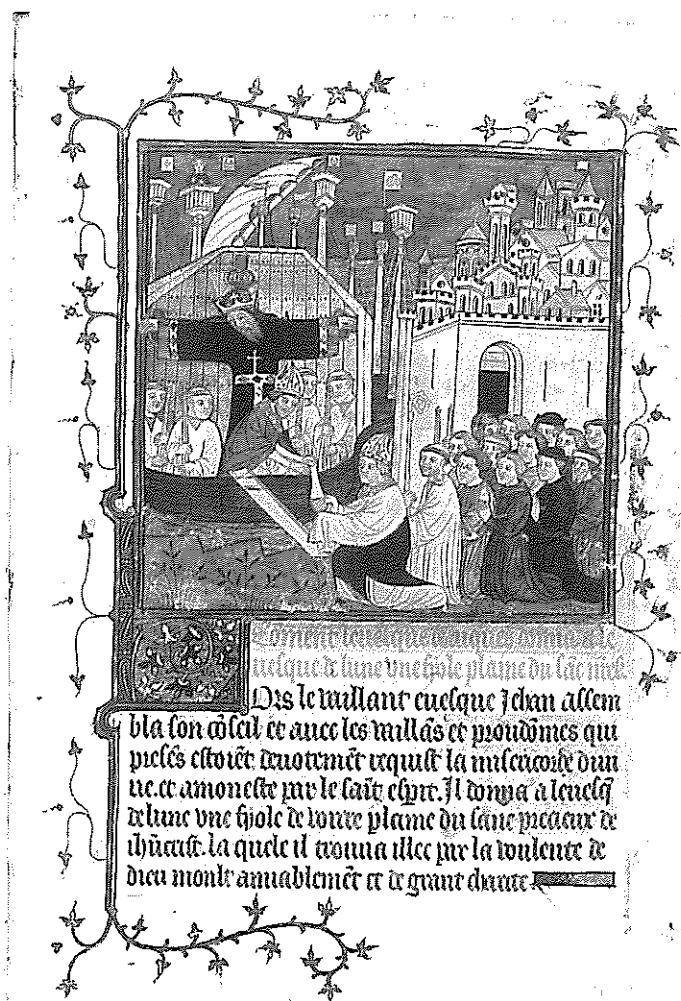 Coment leuesque
uesque de lune vne fyole plaine du sāc
Ors le vaillant euesque Jehan assem
bla son cōseil et auec les vaillās et proudōmes qui
presēs estoiēt deuotemēt requist la misericorde diui
ne. et amoneste par le saīt esprit. Il donna a leuesq̄
de lune vne fyole de voirre plaine du sanc precieux de
ihūcrist. la quele il trouua illec par la voulente de
dieu moult amiablemēt et de grant charite